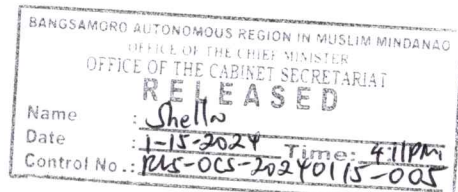 BANGSAMORO AUTONOMOUS REGION IN MUSLIM MINDANAO
OFFICE OF THE CHIEF MINISTER
OFFICE OF THE CABINET SECRETARIAT
RELEASED
Name :
Date : 1-15-2024 Time: 4:11PM
Control No.: -OCS-20240115-005